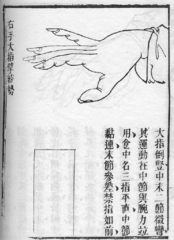 右手大指學拆勢
大指倒豎中末二節微彎
其運動在中節與腕力並
用食中名三指平直中節
黏連末節參差禁指如前